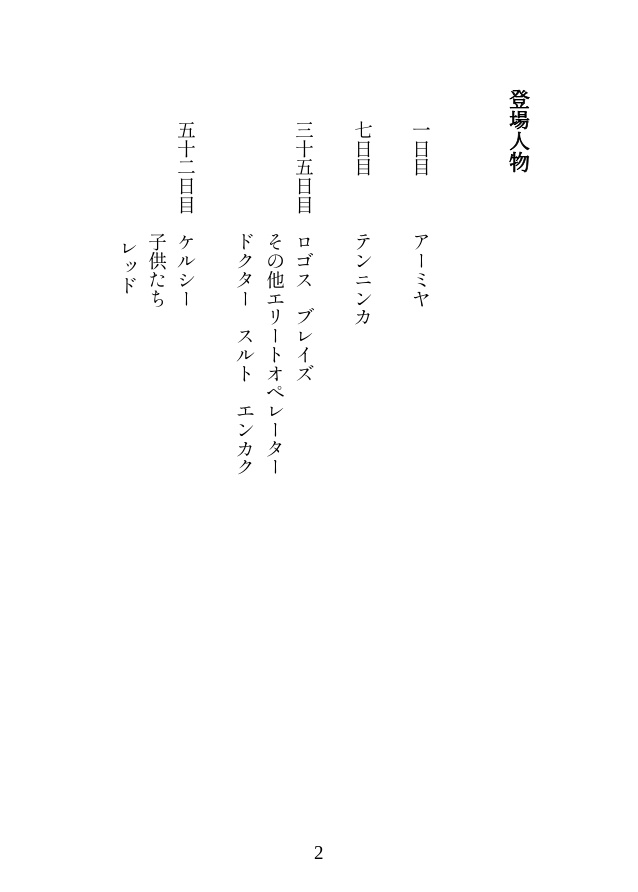 登場人物
一日目　アーミヤ
七日目　テンニンカ
三十五日目　ロゴス　ブレイズ
その他エリートオペレーター
ドクター　スルト　エンカク
五十二日目　ケルシー
子供たち
レッド
2